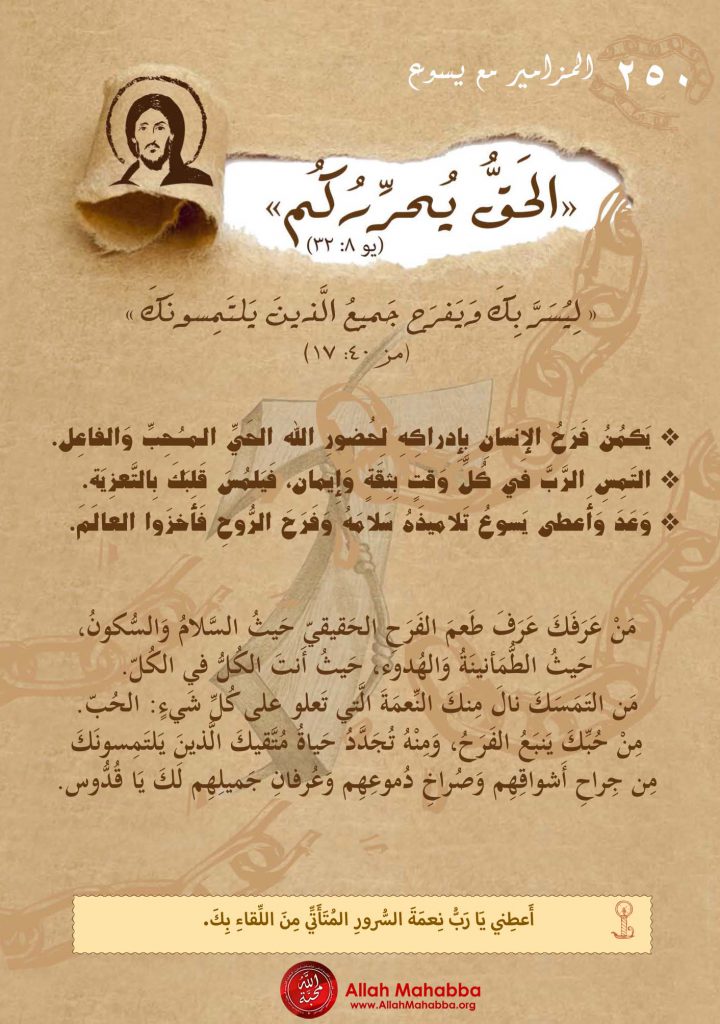 ٢٥٠ المزامير مع يسوع
«الحَقُّ يُحرِّرُكُم»
(يو ٨: ٣٢)
« لِيُسَرَّ بِكَ وَيَفرَح جَميعُ الَّذينَ يَلتَمِسونَكَ »
(مز ٤٠: ١٧)
❖ يَكمُنُ فَرَحُ الإِنسانِ بِإدراكِهِ لِحُضورِ الله الحَيِّ المُحِبِّ وَالفاعِل.
❖ التَمِسِ الرَّبَّ في كُلِّ وَقتٍ بِثِقَةٍ وَإيمان، فَيَلمُسَ قَلبَكَ بِالتَّعزِيَة.
❖ وَعَدَ وَأَعطى يَسوعُ تَلاميذَهُ سَلامَهُ وَفَرَحَ الرُّوحِ فَأَخزَوا العالَمَ.
مَنْ عَرَفَكَ عَرَفَ طَعمَ الفَرَحِ الحَقيقيّ حَيثُ السَّلامُ وَالسُّكونُ،
حَيثُ الطُّمَأنينَةُ وَالهُدوءُ، حَيثُ أَنتَ الكُلُّ في الكُلّ.
مَن التَمَسَكَ نالَ مِنكَ النِّعمَةَ الَّتي تَعلو على كُلِّ شَيءٍ: الحُبّ.
مِنْ حُبِّكَ يَنبَعُ الفَرَحُ، وَمِنْهُ تُجَدَّدُ حَياةُ مُتَّقيكَ الَّذينَ يَلتَمِسونَكَ
مِن جِراحِ أَشواقِهِم وَصُراخِ دُموعِهِم وَعُرفانِ جَميلِهِم لَكَ يَا قُدُّوس.
أَعطِني يَا رَبُّ نِعمَةَ السُّرورِ المُتَأَتِّي مِنَ اللِّقاءِ بِكَ.
الله محبة
Allah Mahabba
www.AllahMahabba.org